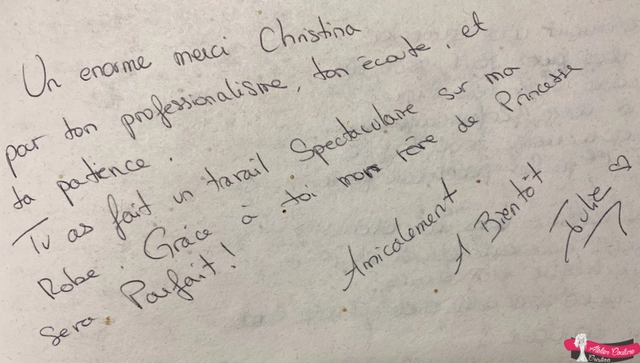 Un enorme merci Christina
par ton professionalisme, ton écoute, et
ta patience.
Tu as fait un travail Spectaculaire sur ma
Robe. Grâce à toi mon rêve de Princesse
sera Parfait!
Amicalement.
A Bientôt
Julie
Atelier Couture